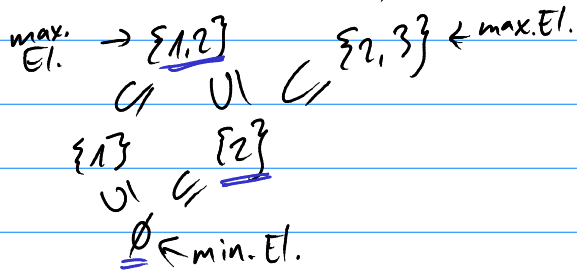 max. El. → {1,2} {2,3} ← max. El.
⊆ ∪| ⊆
{1} {2}
∪| ⊆
∅ ← min. El.